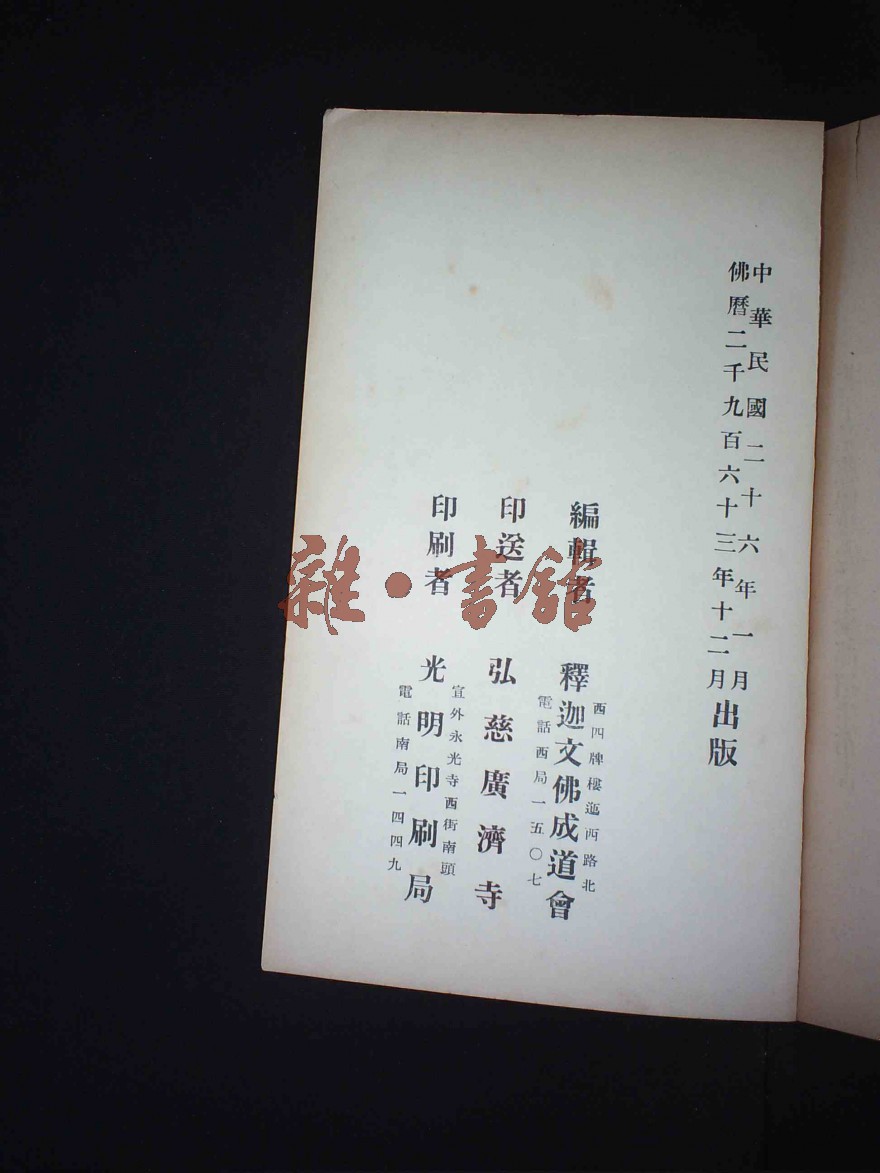 中華民國二十六年一月
佛曆二千九百六十三年十二月
出版
編輯者 釋迦文佛成道會
西四牌樓迤西路北
電話西局一五〇七
印送者 弘慈廣濟寺
印刷者 光明印刷局
宣外永光寺西街南頭
電話南局一四四九
雜·書館